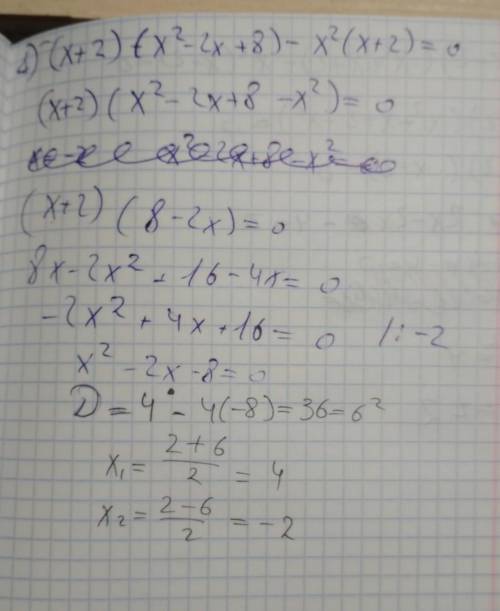 1) (x+2) (x²-2x+8) - x²(x+2) = 0
(x+2) (x² - 2x+8 - x²) = 0
(x+2) (8-2x) = 0
8x - 2x² + 16 - 4x = 0
-2x² + 4x + 16 = 0 /: -2
x² - 2x - 8 = 0
D = 4 - 4(-8) = 36 = 6²
x₁ = (2+6)/2 = 4
x₂ = (2-6)/2 = -2